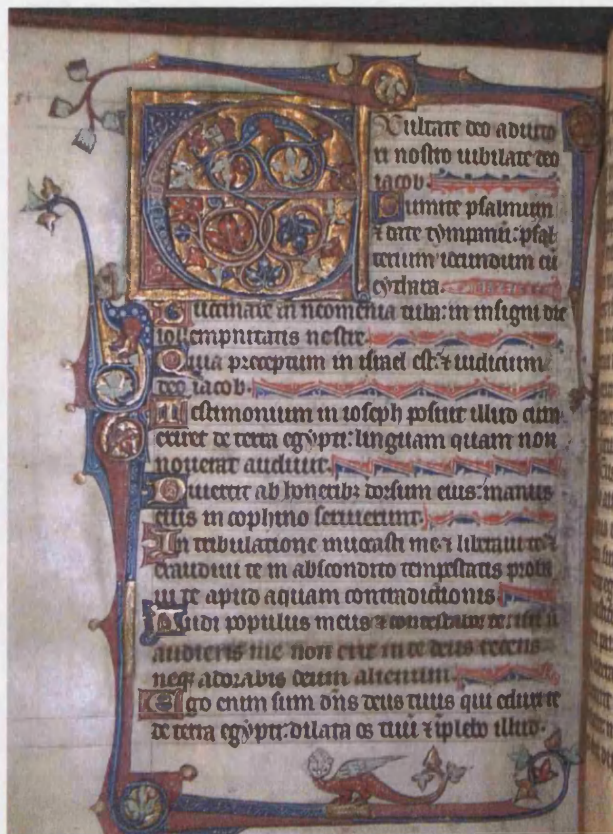 EXultate deo adiuto
ri nostro iubilate deo
iacob.
Sumite psalmum
⁊ date tympanū: psal
terium iocundum cū
cythara.
Buccinate in neomenia tuba: in insigni die
sollempnitatis nostre.
Quia preceptum in israel est: ⁊ iudicium
deo iacob.
Testimonium in ioseph posuit illud cum
exiret de terra egypti: linguam quam non
nouerat audiuit.
Diuertit ab honeribꝫ dorsum eius: manus
eius in cophino seruierunt.
In tribulatione inuocasti me ⁊ liberaui te ⁊
exaudiui te in abscondito tempestatis proba
ui te apud aquam contradictionis.
Audi populus meus ⁊ contestabor te:
audieris me non erit in te deus recens
neqꝫ adorabis deum alienum.
Ego enim sum dn̄s deus tuus qui eduxi te
de terra egypti: dilata os tuū ⁊ īplebo illud.